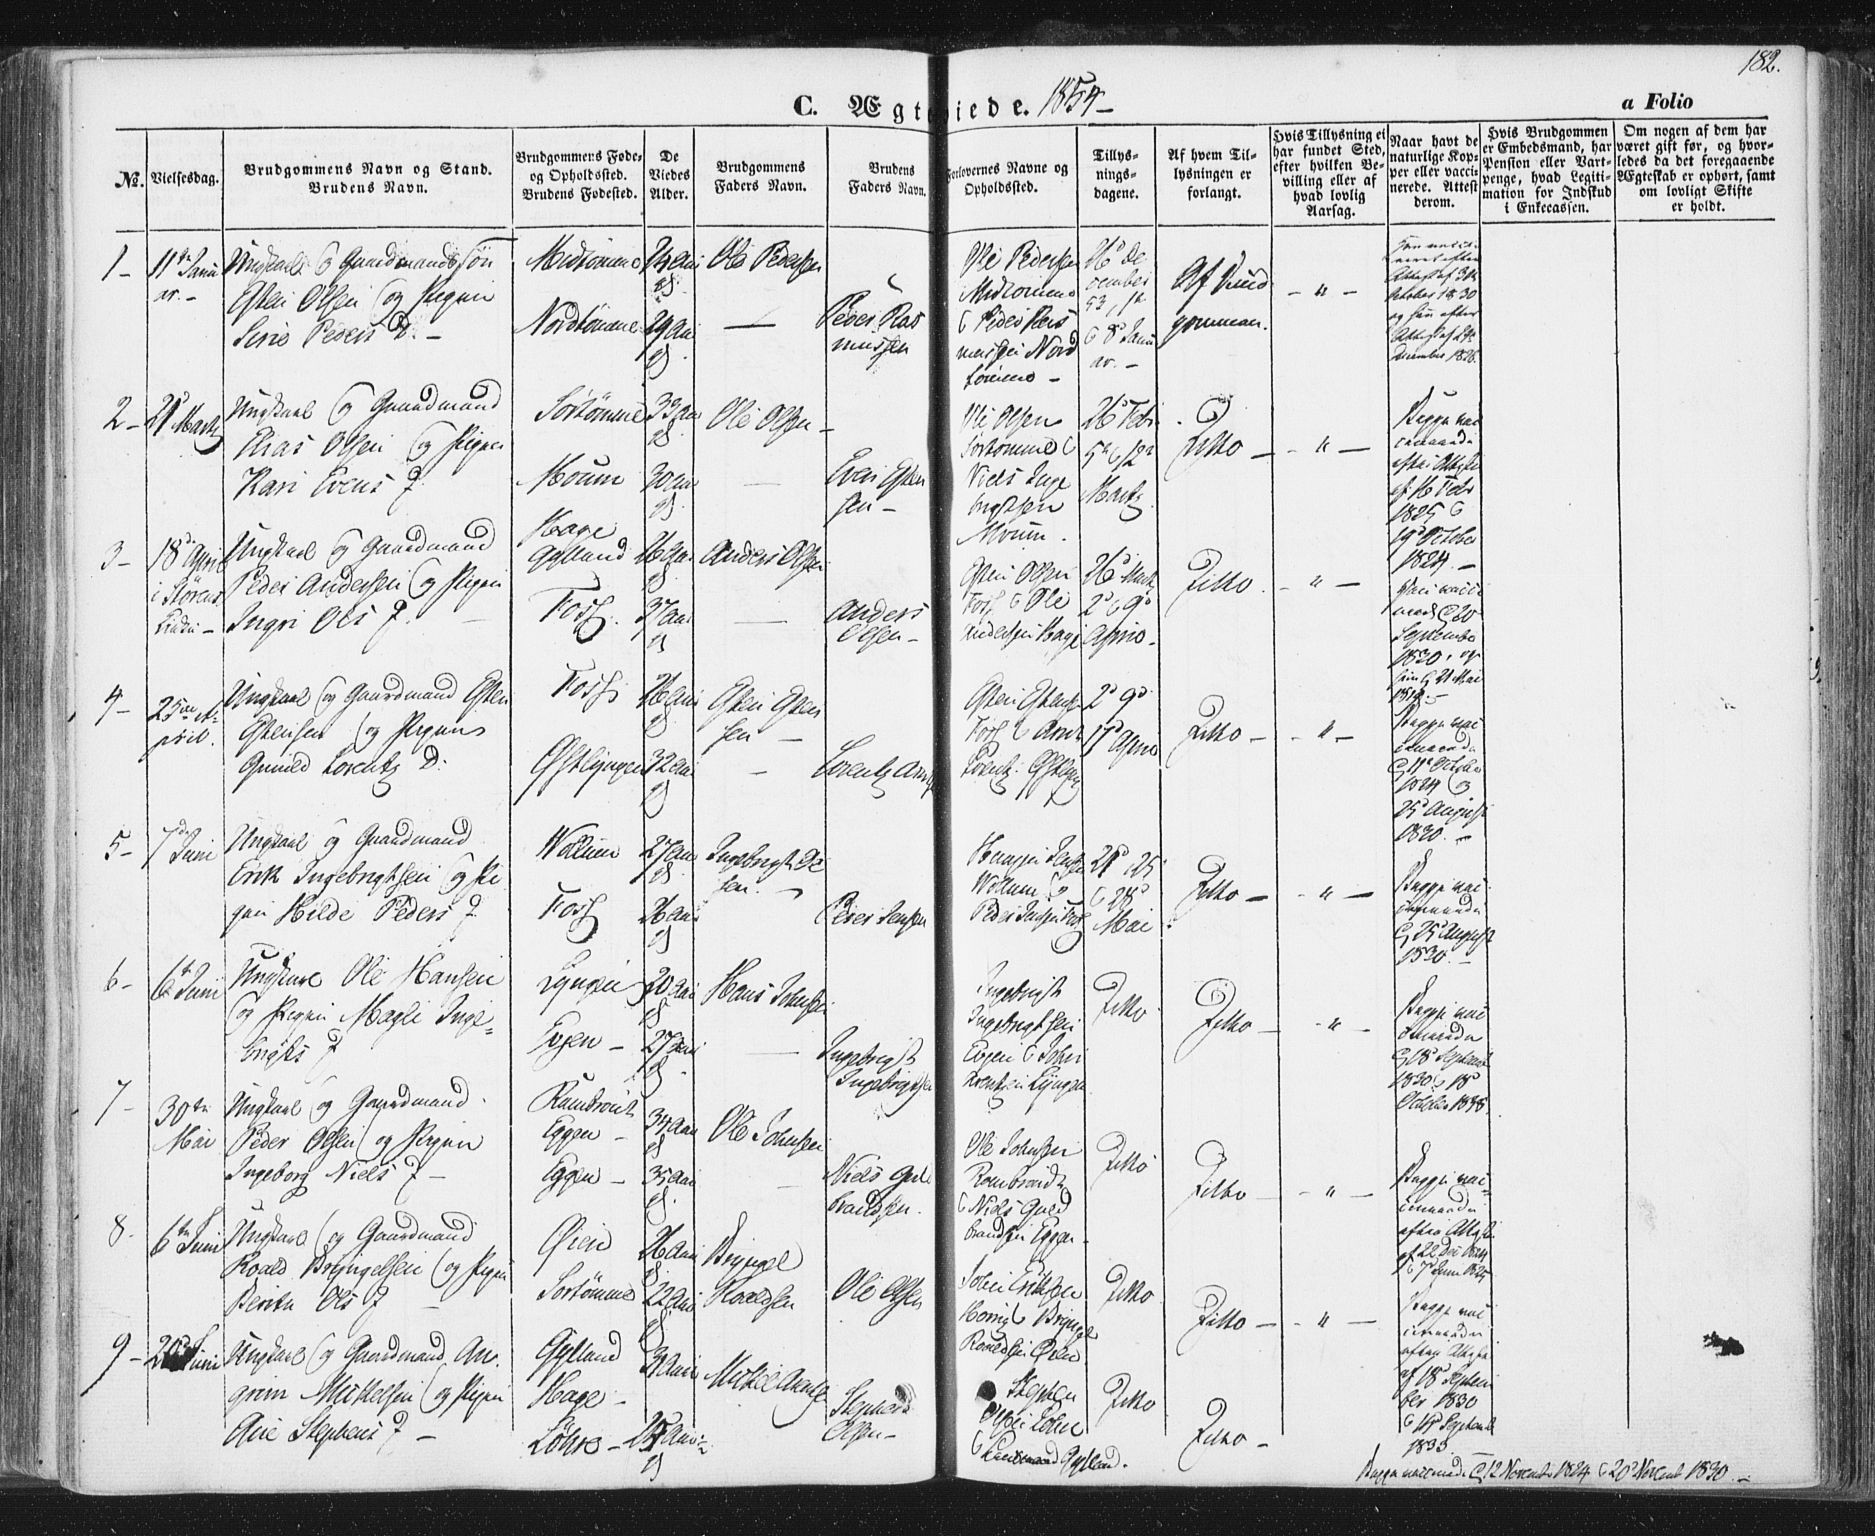 182.
C. Ægteviede. 1854
a Folio
No.
Vielsesdag.
Brudgommens Navn og Stand.
Brudens Navn.
Brudgommens Føde-
og Opholdssted.
Brudens Fødested.
De
Viedes
Alder.
Brudgommens
Faders Navn.
Brudens
Faders Navn.
Forlovernes Navne og
Opholdssted.
Tillys-
nings-
dagene.
Af hvem Til-
lysningen er
forlangt.
Hvis Tillysning ei
har fundet Sted,
efter hvilken Be-
villing eller af
hvad lovlig
Aarsag.
Naar havt de
naturlige Kop-
per eller vacci-
nerede. Attest
derom.
Hvis Brudgommen
er Embedsmand, har
Pension eller Vart-
penge, hvad Legiti-
mation for Indskud
i Enkecassen.
Om nogen af dem har
været gift før, og hvor-
ledes da det foregaaende
Ægteskab er ophørt, samt
om lovligt Skifte
er holdt.
1-
11te Janu
ar. -
Ungkarl og Gaardmandssøn
Esten Olsen og Pigen
Siri Peders D. -
Midtømme
Nordtømme
24 aar
29 aar
Ole Pedersen
Peder Ras
mussen
Ole Pedersen
Midtømme
& Peder Ras
mussen Nord
tømme -
26d De
cember
53, 1te
& 8d Janu
ar. -
Af Brud
gommen.
- " -
October 1830
og hun efter
December 1826.
2-
21d Marts
Ungkarl og Gaardmand
Elias Olsen og Pigen
Kari Evens D.
Sortømme
Moum
33 aar
30 aar
Ole Olsen -
Even Esten
sen -
Ole Olsen
Sortømme &
Niels Inge
brigtsen
Moum.
26d Febr
5te & 12te
Marts
Ditto
- " -
Begge vac
cinerede
efter Attest
af 16 Febr
1825 &
19d October
1824. -
3-
18de April
i Størens
Kirke -
Ungkarl og Gaardmand
Peder Andersen og Pigen
Ingri Ols D. -
Hage
Gylland
Foss.
26 aar
37 aar
Anders Olsen
Anders
Olsen -
Esten Olsen
Foss & Ole
Andersen Hage
26d Marts
2d & 9d
April -
Ditto.
- " -
September
1830, og
hun 21 Mai
1818. -
4-
25de A-
pril.
Ungkarl og Gaardmand Esten
Estensen og Pigen
Gunild Lorentz D.
Foss
Østlyngen
26 aar
32 aar
Esten Esten
sen -
Lorentz Arntz
Esten Estensen
Foss & Arnt
Lorentz. Østlyng
2d 9d
17d April
Ditto -
- " -
Begge vac
cinerede
11te October
1824 og
25d August
1830. -
5-
7de Juni
Ungkarl og Gaardmand
Erik Ingebrigtsen og Pi
gen Hilde Peders D.
Wollum
Foss
27 aar
26 aar
Ingebrigt Ol
sen. -
Peder Jensen
Wollum og
Peder Jensen Foss
21d 25
& 28d
Mai
Ditto -
- " -
Begge vac
cinerede
25d August
1830. -
6-
6te Juni
Ungkarl Ole Hansen
og Pigen Magli Inge-
brigts D.
Lyngen
Evjen -
20 aar
27 aar
Hans Johnsen
Ingebrigt
Ingebrigtsen
Ingebrigt
Ingebrigtsen
Evjen & John
Arentsen Lyngen
Ditto
Ditto -
- " -
Begge vac
cinerede
18 Septemb
1830 & 18d
October 1838.
7-
30te
Mai
Ungkarl og Gaardmand
Peder Olsen og Pigen
Ingeborg Niels D. -
Rambraut
Eggen -
Eggen -
34 aar
35 aar
Ole Johnsen
Niels Guld
brandsen.
Ole Johnsen
Rambraudt
& Niels Guld
brandsen Eggen -
Ditto
Ditto -
- " -
Begge vac-
cinerede
efter Attest
af 22 Dec 1824
& 7d Juni 1825
8-
6te Juni
Ungkarl og Gaardmand
Roald Bryngelsen og Pigen
Beret Ols D. -
Øien
Sortømme
26 aar
22 aar
Bryngel
Roaldsen
Ole Olsen
John Eriksen
Horrig & Bryngel
Roaldsen Øien
Ditto
Ditto -
- " -
Begge vac
cinerede
efter Attest
af 18 Septem
ber 1830
& 14d Septemb
1835
9-
20d Juni
Ungkarl og Gaardmand An-
grim Mikkelsen og Pigen
Ane Stephens D. -
Gylland
Hage -
Løhre -
31 aar
25 aar
Mikkel Arntsen
Stephen
Olsen -
Stephen
Olsen Løhre
& Gylland.
Ditto
Ditto -
Begge vaccinerede 12 November 1824 & 20d Novemb 1830. -